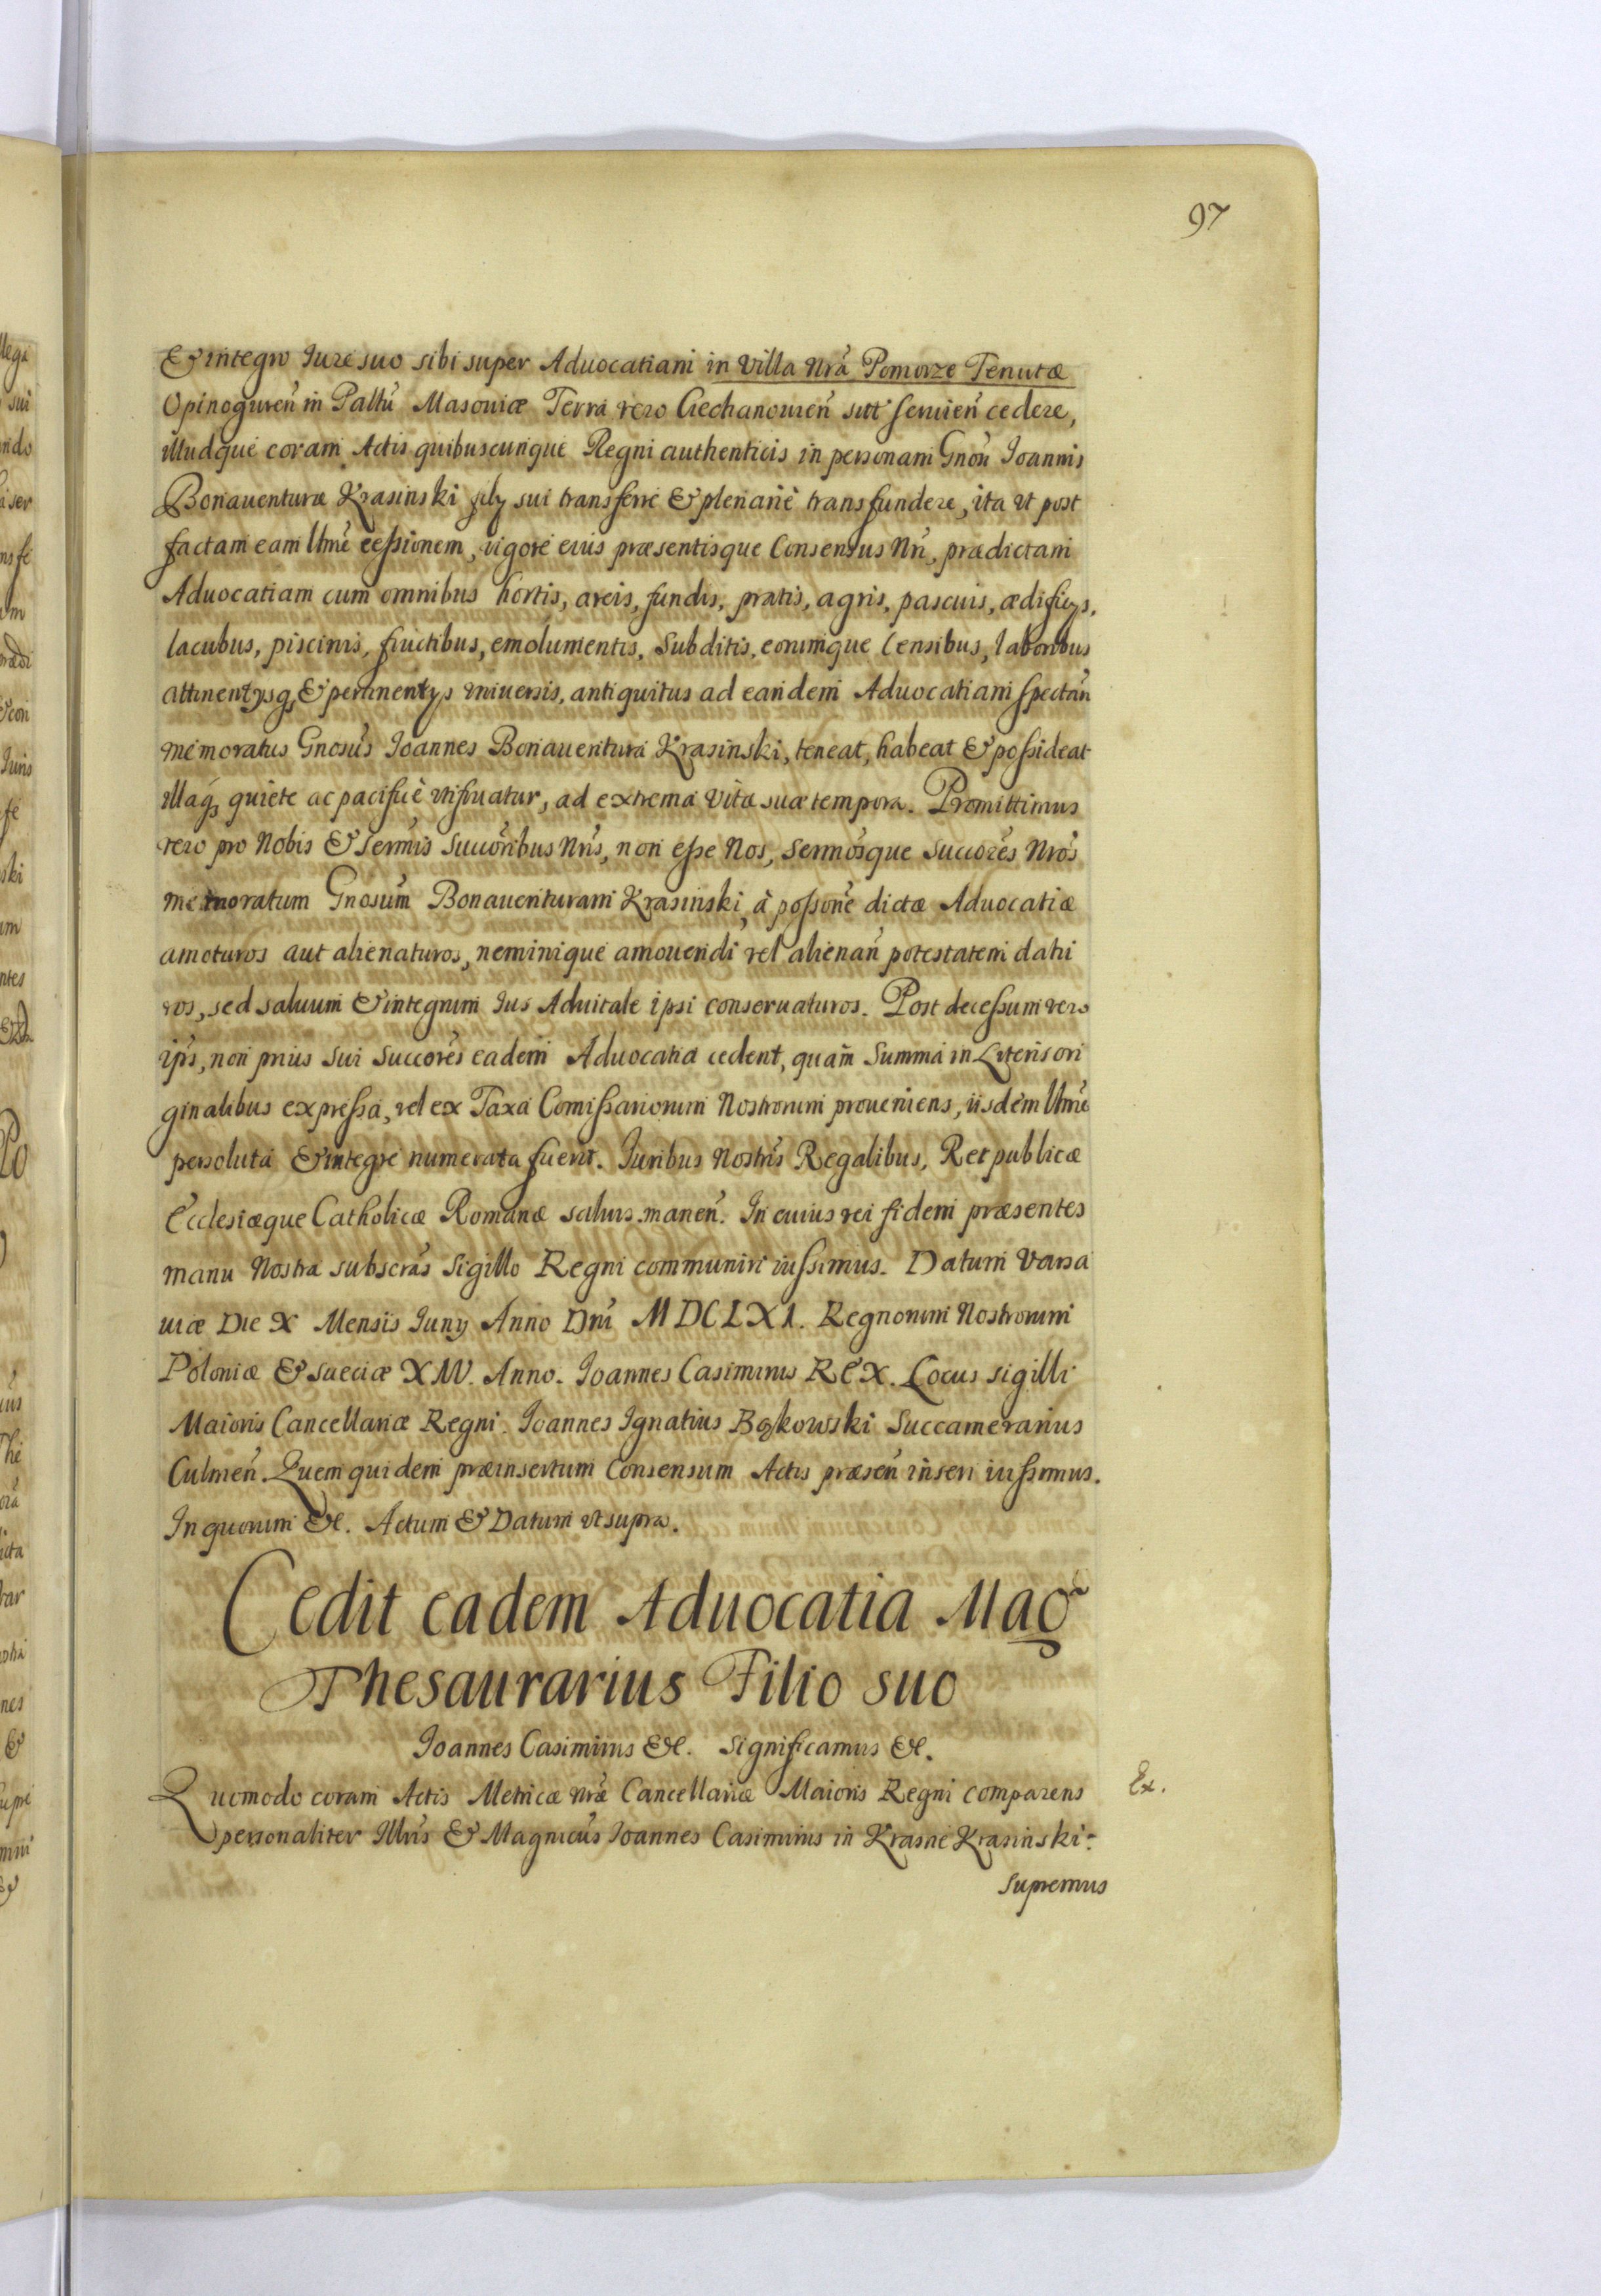 97
& integro Iure suo sibi super Aduocatiam in Villa Nrã Pomorze Tenutæ
Opinoguren̄ in Paltũ Masouiæ Terrâ vero Ciechanouien̄ sitt seruien̄ cedere,
illudque coram Actis quibuscunque Regni authenticis in personam Gnõu Ioannis
Bonauenturæ Krasinski filij sui transferre & plenariè transfundere, ita vt post
factam eam ltmẽ cessionem, vigore eius præsentisque Consensus Nrĩ, prædictam
Aduocatiam cum omnibus hortis, areis, fundis, pratis, agris, pascuis, ædificijs,
lacubus, piscinis, fructibus, emolumentis, Subditis, eorumque Censibus, laboribus
attinentijsq, & pertinentijs vniuersis, antiquitus ad eandem Aduocatiam spectan̄
memoratus Gnosũs Ioannes Bonauentura Krasinski, teneat, habeat & possideat
illaq, quiete ac pacificè vtifruatur, ad extrema Vitæ suæ tempora. Promittimus
vero pro Nobis & Sermĩs Succõribus Nrĩs, non esse Nos, Sermõsque Succorẽs Nrõs
memoratum Gnosũm Bonauenturam Krasinski, à possonẽ dictæ Aduocatiæ
amoturos aut alienaturos, neminique amouendi vel alienan̄ potestatem datu
ros, sed saluum & integrum Ius Aduitale ipsi conseruaturos. Post decessum vero
ipĩs, non prius sui Succorẽs eadem Aduocatia cedent, quam Summa in Literis ori
ginalibus expressa, vel ex Taxa Comissariorum Nostrorum proueniens, iisdem ltmẽ
persoluta & integre numerata fuerit. Iuribus Nostrĩs Regalibus, Reipublicæ
Ecclesiæque Catholicæ Romanæ saluis manen̄. In cuius rei fidem præsentes
manu Nostra subscrãs Sigillo Regni communiri iussimus. Datum Varsa
uiæ Die X Mensis Iunij Anno Dnĩ MDCLXI. Regnorum Nostrorum
Poloniæ & Sueciæ XIV. Anno. Ioannes Casimirus REX. Locus sigilli
Maioris Cancellariæ Regni. Ioannes Ignatius Bąkowski Succamerarius
Culmen̄. Quem quidem præinsertum Consensum Actis præsen̄ inseri iussimus.
In quorum &c. Actum & Datum vt supra.
Cedit eadem Aduocatia Mag̃
Thesaurarius Filio suo
Ioannes Casimirus &c. Significamus &c.
Quomodo coram Actis Metricæ Nrẽ Cancellariæ Maioris Regni comparens
personaliter Illrĩs & Magnicũs Ioannes Casimirus in Krasne Krasinski
Ex.
Supremus